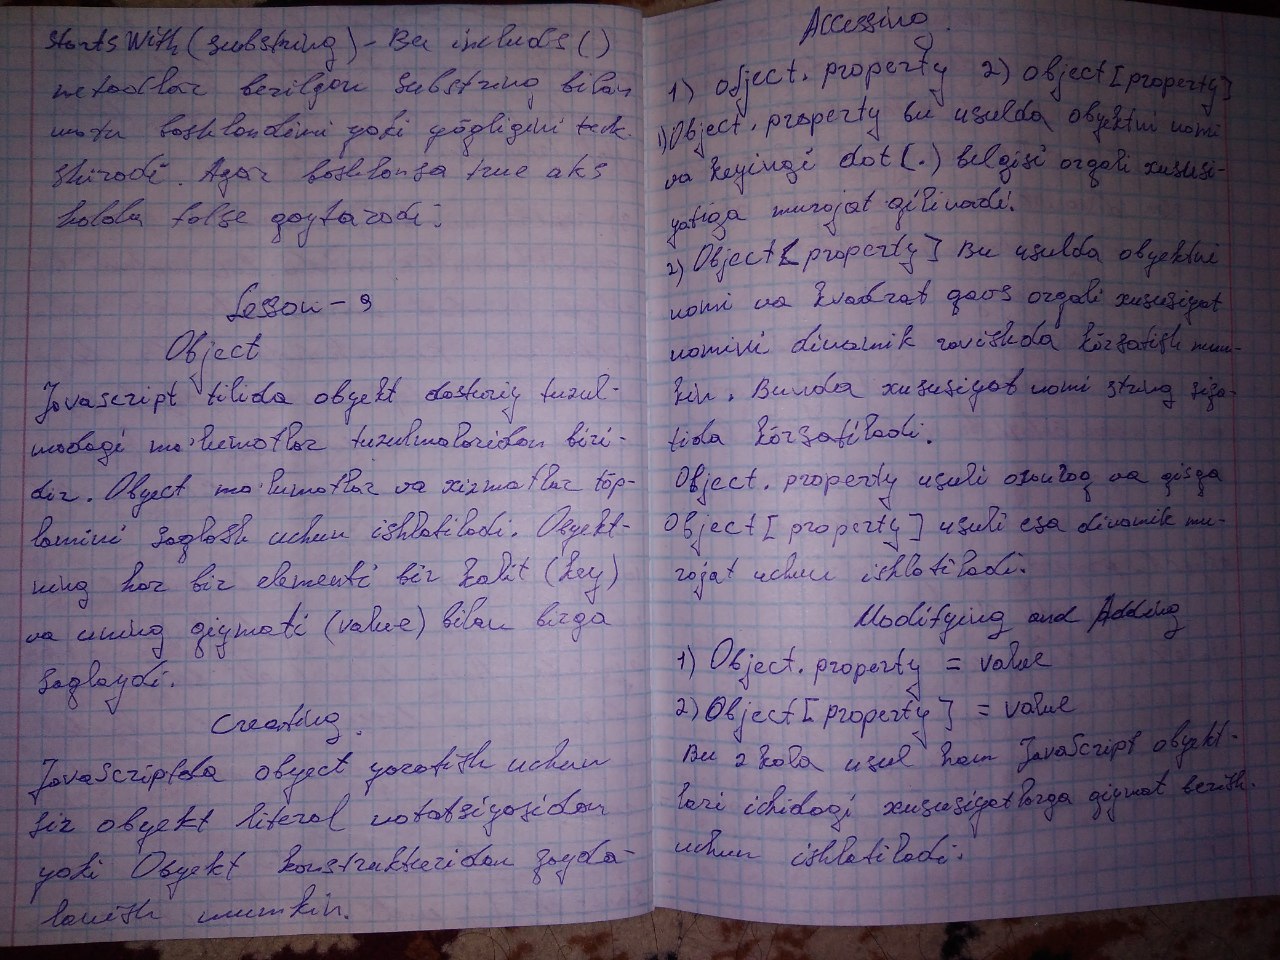 startsWith(substring) - Bu includs()
metodlar berilgan substring bilan
matn boshlandimi yoki yo'qligini tek-
shiradi. Agar boshlansa true aks
holda false qaytaradi.
Lesson - 9
Object
Javascript tilida obyekt dasturiy tuzul-
madagi ma'lumotlar tuzulmalaridan biri-
dir. Obyect ma'lumotlar va xizmatlar tõp-
lamini saqlash uchun ishlatiladi. Obyekt-
ning har bir elementi bir kalit (key)
va uning qiymati (value) bilan birga
saqlaydi.
Creating.
JavaScriptda obyect yaratish uchun
siz obyekt literal notatsiyasidan
yoki Obyekt konstruktoridan foyda-
lanish mumkin.
Accessing.
1) object.property 2) object[property]
1) Object.property bu usulda obyektni nomi
va keyingi dot(.) belgisi orqali xususi-
yatiga murojat qilinadi.
2) Object[property] Bu usulda obyektni
nomi va kvadrat qavs orqali xususiyat
nomini dinamik ravishda kõrsatish mum-
kin. Bunda xususiyat nomi string sifa-
tida kõrsatiladi.
Object.property usuli osonroq va qisqa
Object[property] usuli esa dinamik mu-
rojat uchun ishlatiladi.
Modifying and Adding
1) Object.property = value
2) Object[property] = value
Bu 2 kala usul ham JavaScript obyekt-
lari ichidagi xususiyatlarga qiymat berish
uchun ishlatiladi.